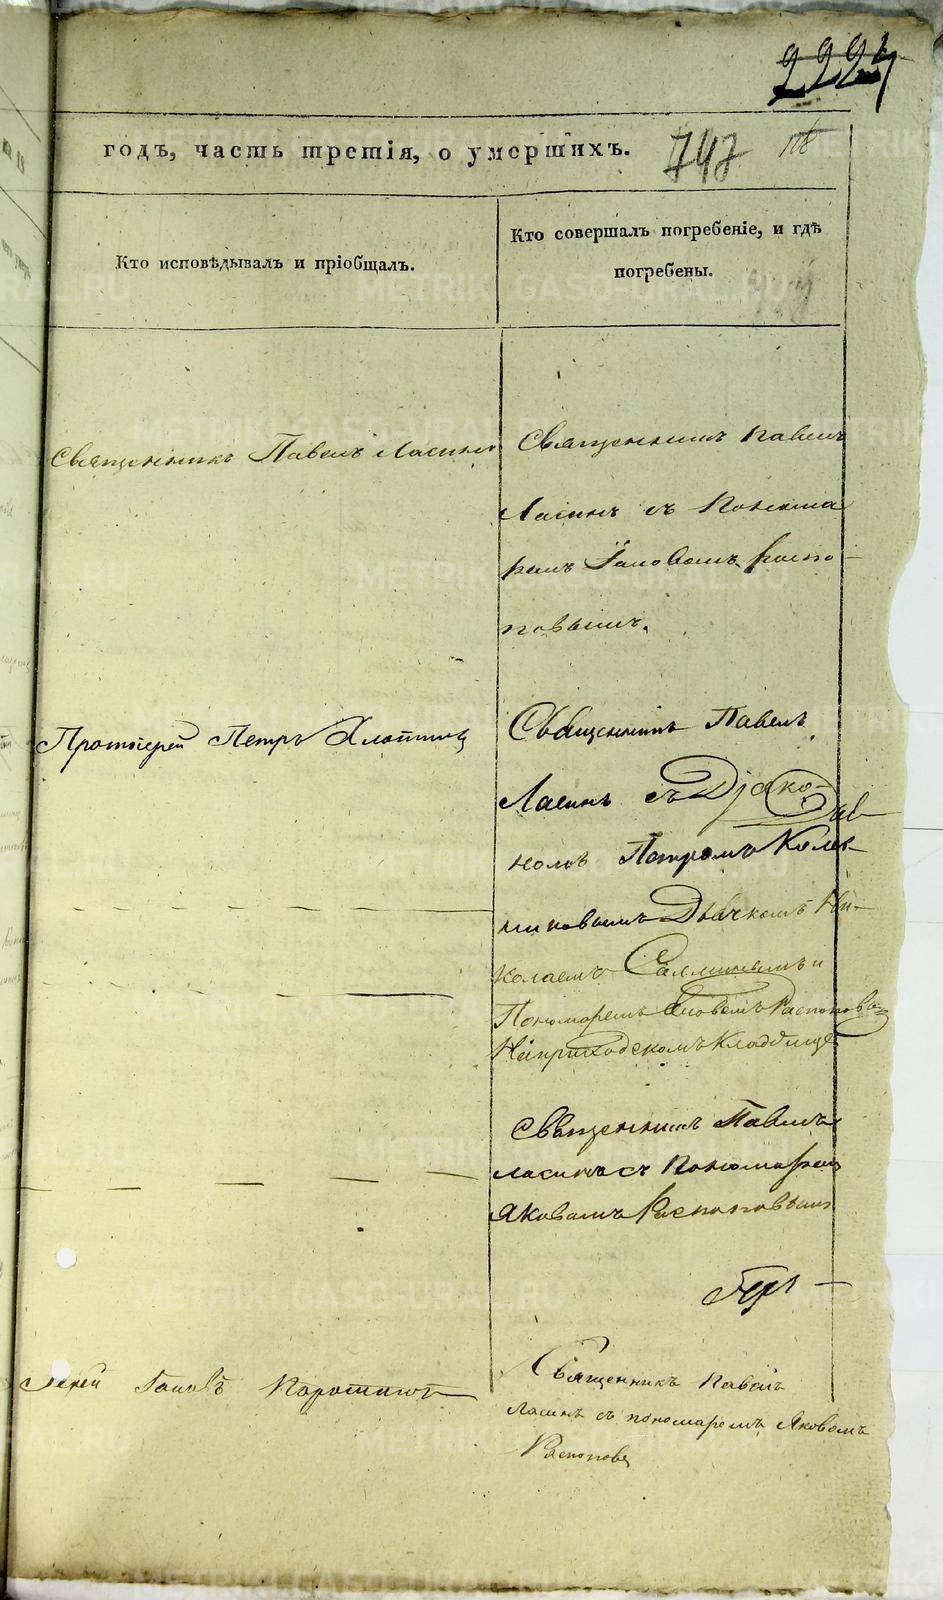 годъ, часть третія, о умершихъ. 747
Кто исповѣдывалъ и пріобщалъ.
Кто совершалъ погребеніе, и гдѣ
погребены.
Священникъ Павелъ Ласинъ
Священникъ Павелъ
Ласинъ съ Понома
ремъ Яковомъ Распо-
повымъ.
Протоіерей Петръ
Священникъ Павелъ
Ласинъ съ Діако-
номъ Петромъ
Дьячкомъ Ни-
колаемъ и
Пономаремъ Яковомъ Распоповы
На приходскомъ Кладбище
Священникъ Павелъ
Ласинъ съ Пономаремъ
Яковомъ Распоповымъ
Іерей
Священникъ Павелъ
Ласинъ съ пономаремъ Яковомъ
Распопов
METRIKI.GASO-URAL.RU